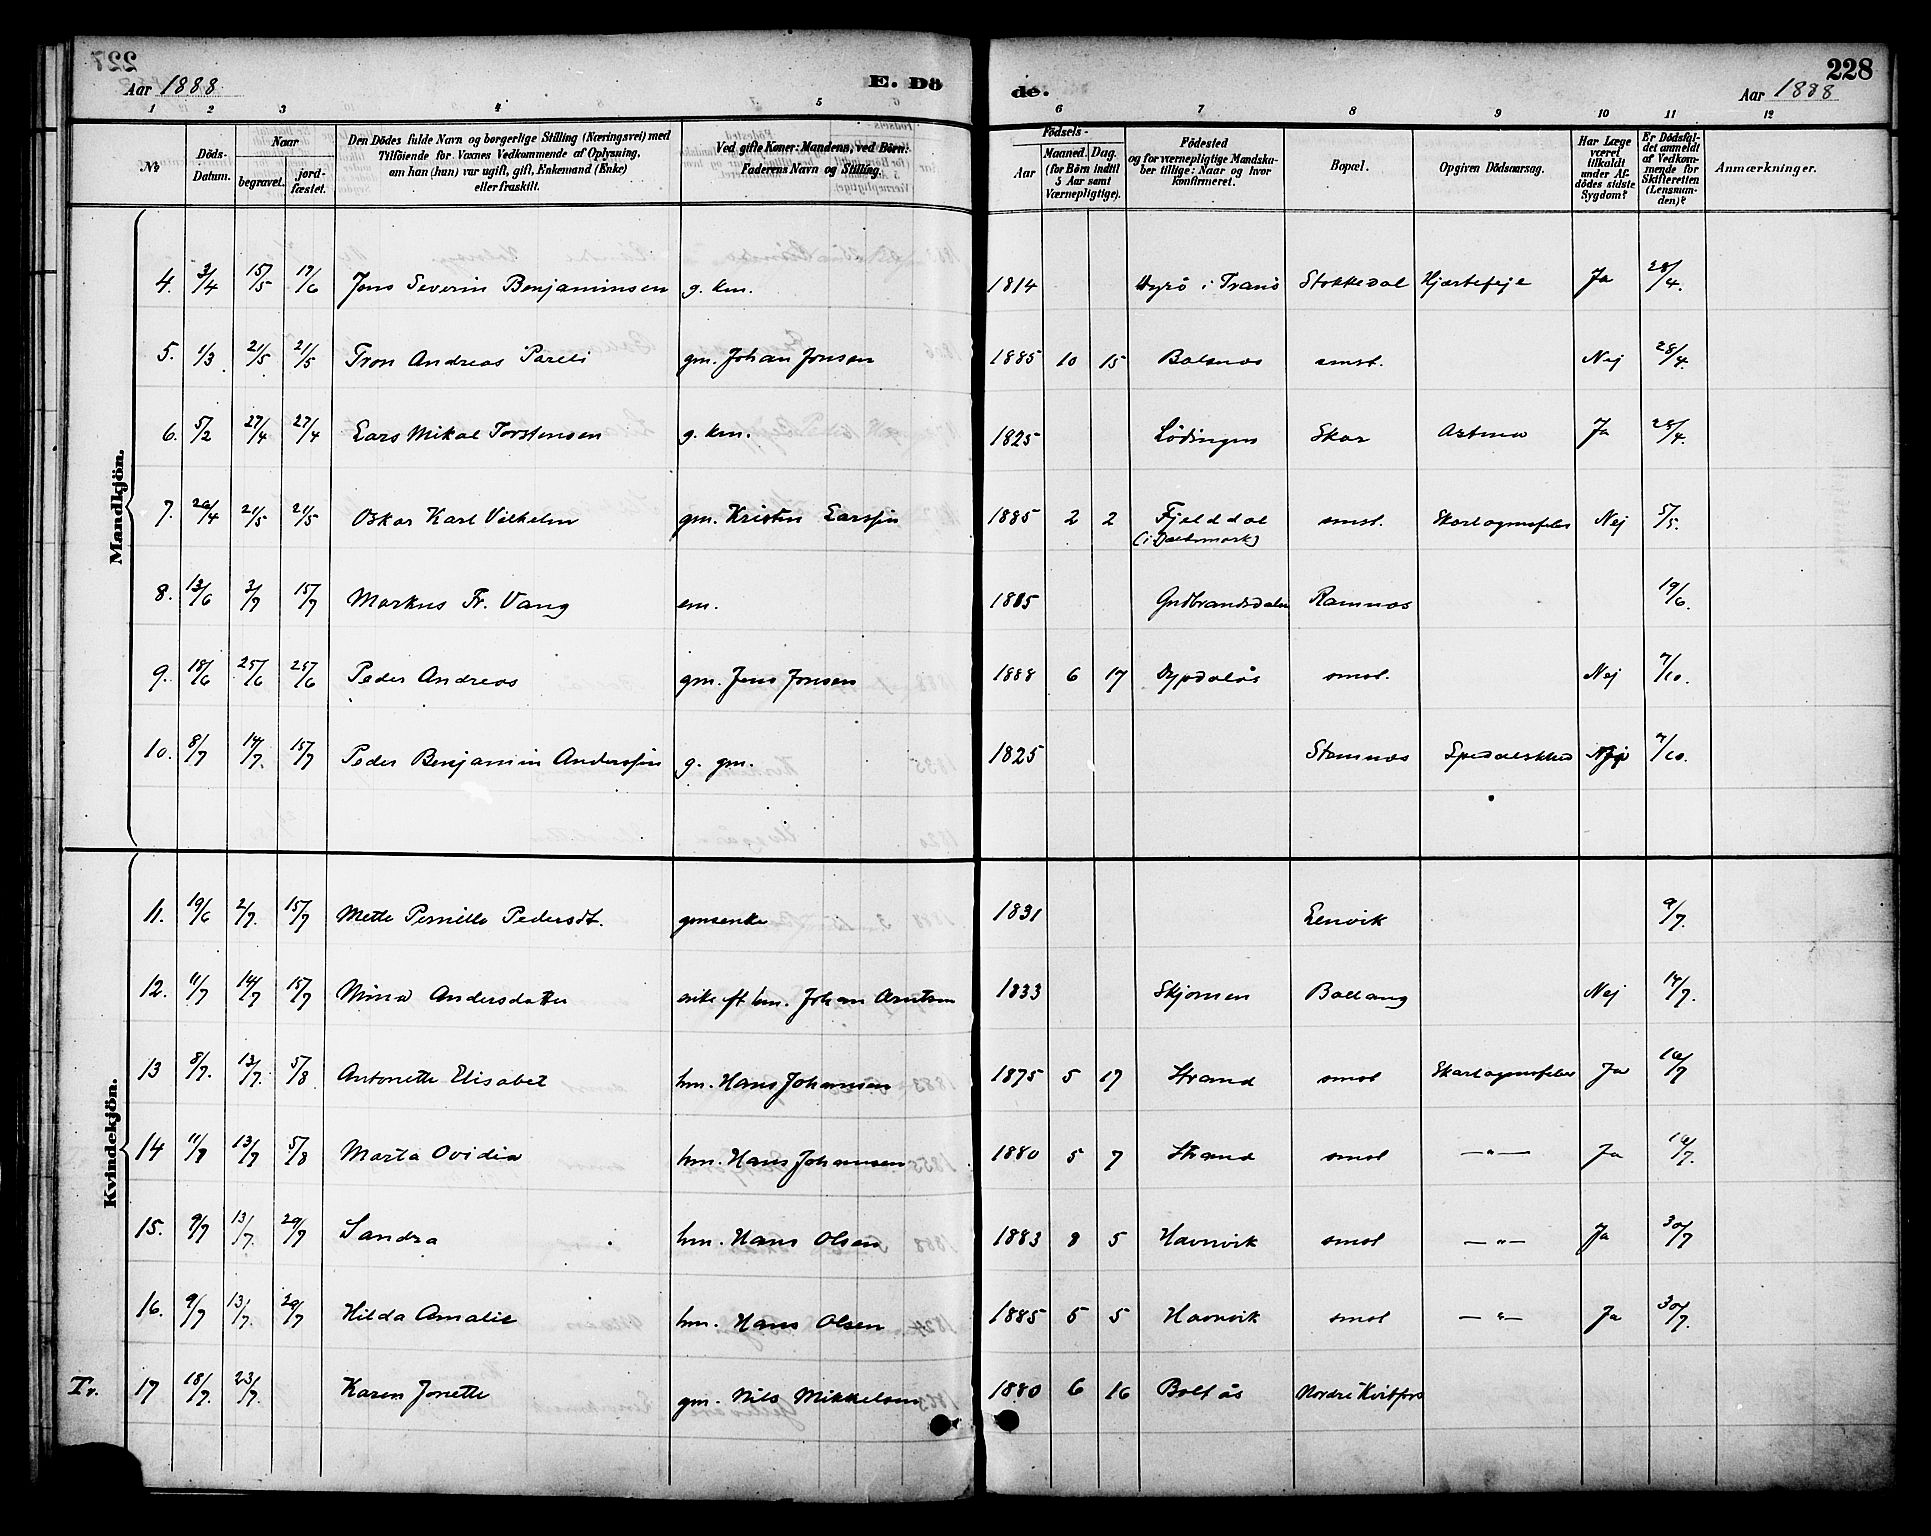 227
228
Aar 1888.
E. Dö
de.
Aar 1888
1 2 3 4 5 6 7 8 9 10 11 12
No
Döds-Datum.
Naar
begravet.
jord-fæstet.
Den Dödes fulde Navn og borgerlige Stilling (Næringsvei) med
Tilföiende for Voxnes Vedkommende af Oplysning,
om han (hun) var ugift, gift, Enkemand (Enke)
eller fraskilt.
Ved gifte Koner: Mandens, ved Börn:
Faderens Navn og Stilling.
Födsels-
Aar
Maaned. Dag.
(for Börn indtil
5 Aar samt
Værnepligtige).
Födested
og for værnepligtige Mandska-
ber tillige: Naar og hvor
konfirmeret.
Bopæl.
Opgiven Dödsaarsag.
Har Læge
været
tilkaldt
under Af-
dödes sidste
Sygdom?
Er Dödsfal-
det anmeldt
af Vedkom-
mende for
Skifteretten
(Lensman-
den)?
Anmærkninger.
Mandkjön.
4. 3/4 15/5 17/6 Jens Severin Benjaminsen g. km. 1814 Dyrö i Tranö Stokkedal Hjærtefejl Ja 28/4.
5. 1/3 21/5 21/5 Tron Andreas Pareli gm. Johan Jonsen 1885 10 15 Balsnes smst. Nej 28/4.
6. 5/2 27/4 27/4 Lars Mikal Torstensen g. km. 1825 Lödingen Skar Astma Ja 28/4.
7. 26/4 21/5 21/5 Oskar Karl Vilhelm gm. Kristen Larssen 1885 2 2 Fjelddal smst. Skarlagensfeber Nej 5/5.
(i Dalsmark)
8. 13/6 3/7 15/7 Markus Fr. Vang em. 1805 Gudbrandsdalen Ramnes 19/6.
9. 18/6 25/6 25/6 Peder Andreas gm. Jens Jonsen 1888 6 17 Dypdalås smst. Nej 7/10.
10. 8/7 14/7. 15/7 Peder Benjamin Anderssen g. gm. 1825 Stamnes Spedalskhed Nej 7/10.
Kvindekjön.
11. 19/6 2/7. 15/7 Mette Pernille Pedersdt. gmsenke 1831 Lenvik 9/7.
12. 11/7 14/7 15/7 Mina Andersdatter enke eft. hm. Johan Arntsen 1833 Skjomen Ballang Nej 14/7.
13 8/7. 13/7. 5/8 Antonette Elisabet hm. Hans Johansen 1875 5 17 Strand smst Skarlagensfeber Ja 16/7
14 11/7 13/7 5/8 Marta Ovidia hm. Hans Johansen 1880 5 7 Strand smst —"— Ja 16/7.
15. 9/7 13/7. 29/7 Sandra hm. Hans Olsen 1883 8 5 Havnvik smst —"— Ja 30/7
16. 9/7 13/7. 29/7 Hilda Amalie hm. Hans Olsen 1885 5 5 Havnvik smst —"— Ja 30/7.
Tr. 17 18/7. 23/7. Karen Jonette gm. Nils Mikkelsen 1880 6 16 Boltås Nordre Kvitfors